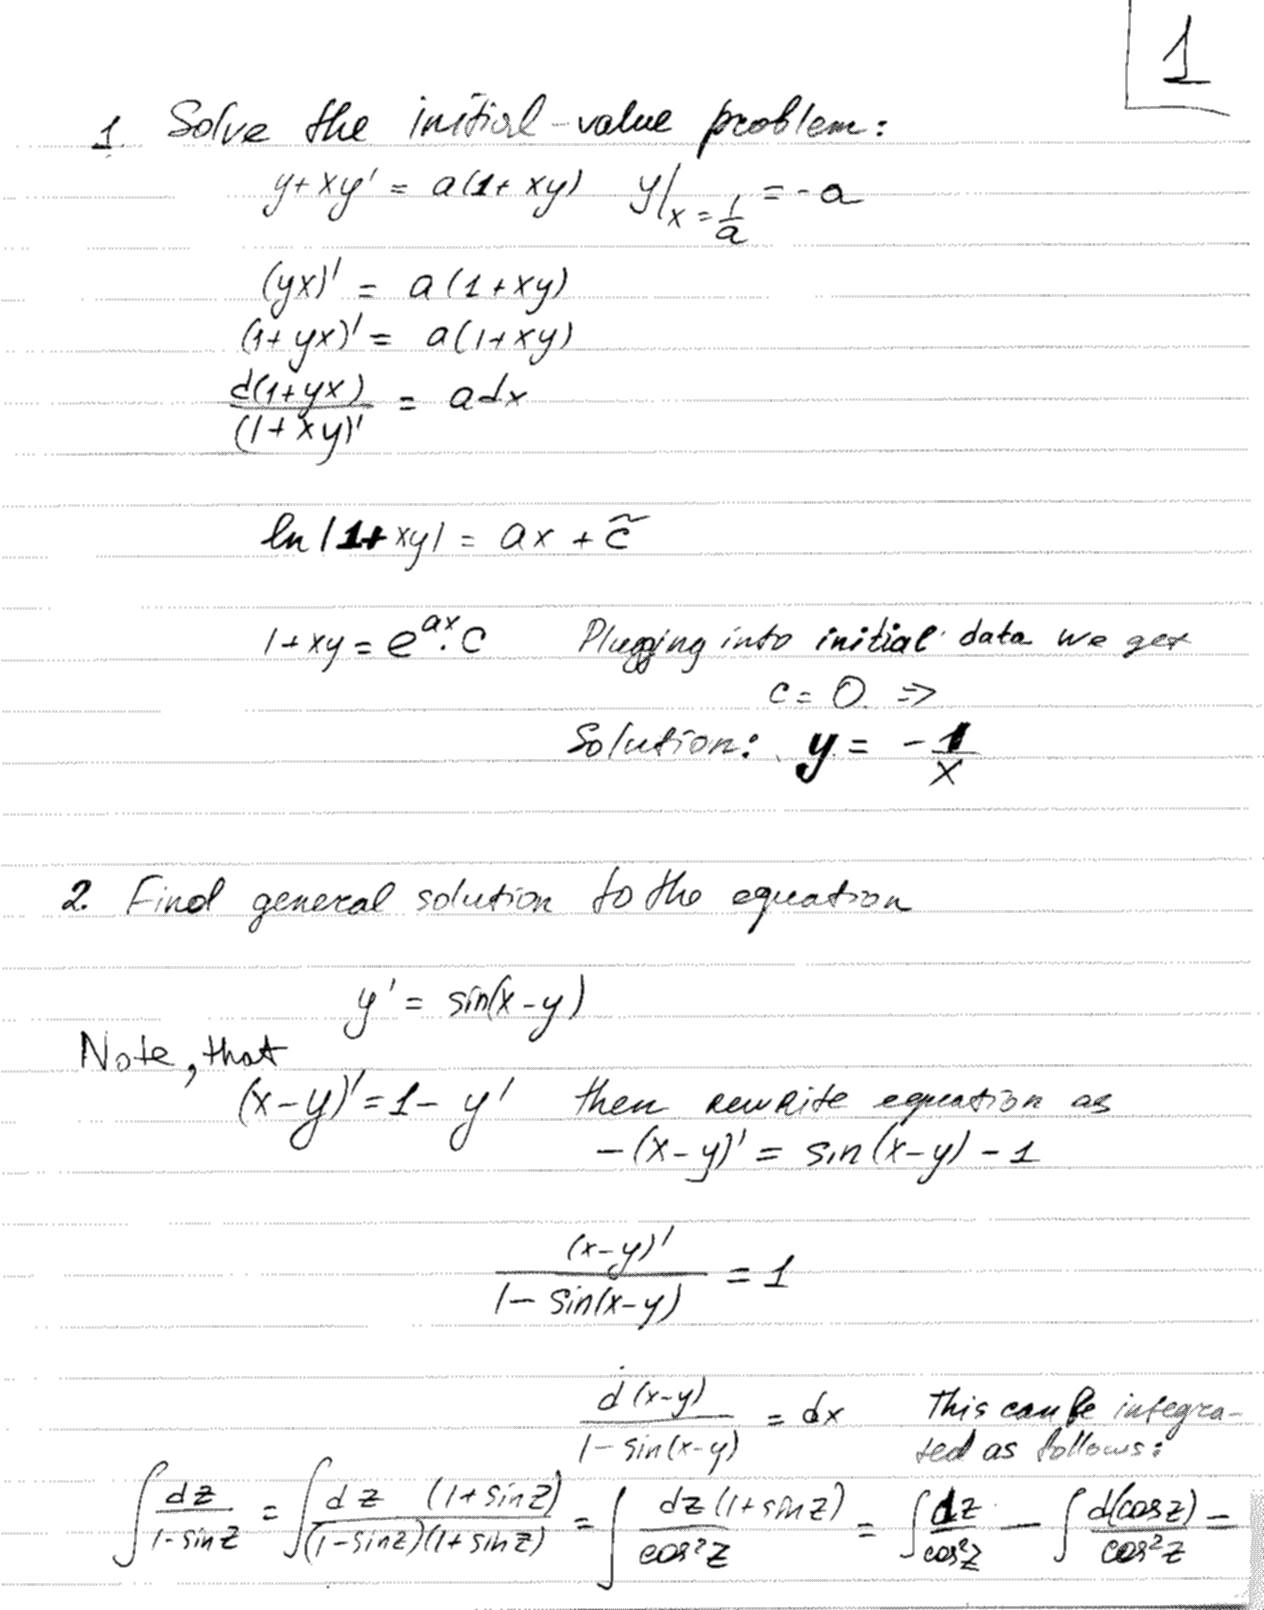 1
1. Solve the initial-value problem:
y+xy' = a(1+xy) y|x=1/a = -a
(yx)' = a(1+xy)
(1+yx)' = a(1+xy)
d(1+yx)/(1+xy)' = adx
ln|1+xy| = ax + c̃
1+xy = e^ax · C Plugging into initial data we get
c = 0 ⇒
Solution: y = -1/x
2. Find general solution to the equation
y' = sin(x-y)
Note, that
(x-y)' = 1 - y' then rewrite equation as
-(x-y)' = sin(x-y) - 1
(x-y)'/(1-sin(x-y)) = 1
d(x-y)/(1-sin(x-y)) = dx This can be integra-
ted as follows:
∫ dz/(1-sin z) = ∫ dz (1+sin z)/((1-sin z)(1+sin z)) = ∫ dz(1+sin z)/cos²z = ∫ dz/cos²z - ∫ d(cos z)/cos²z =